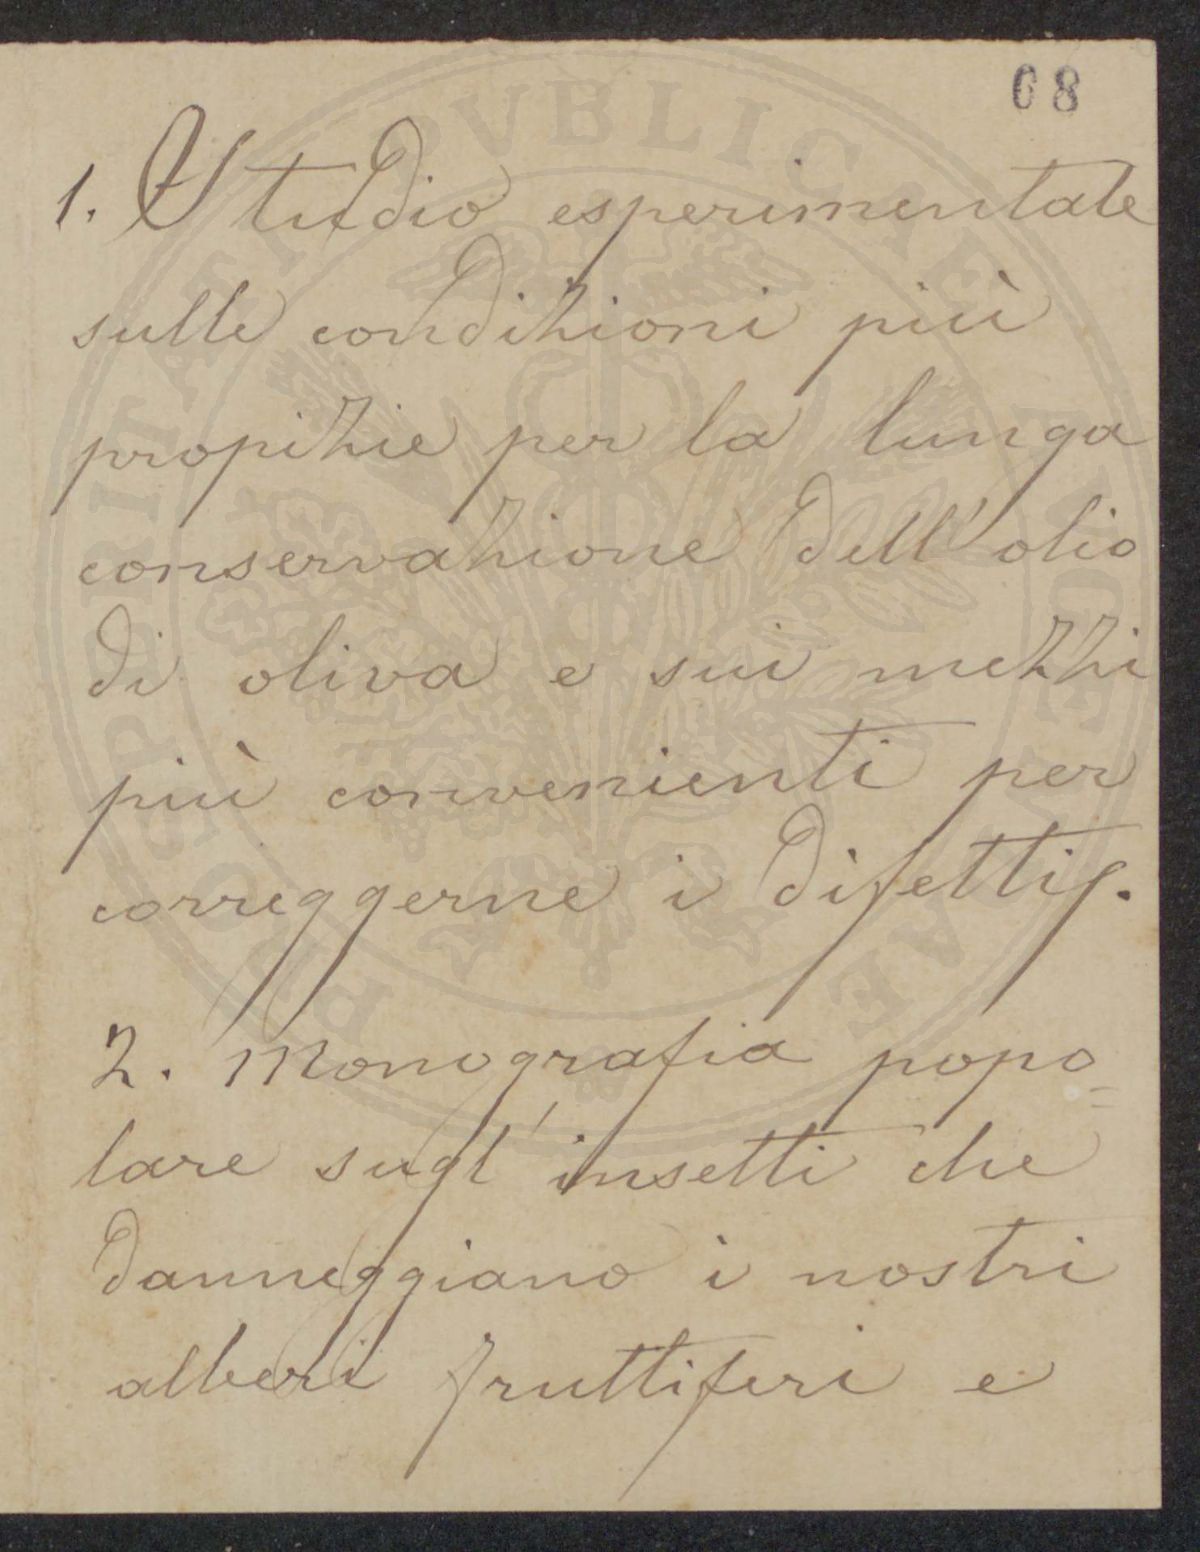 68
1. Studio esperimentale
sulle condizioni più
propizie per la lunga
conservazione dell'olio
di oliva e sui mezzi
più convenienti per
correggerne i difetti.
2. Monografia popo=
lare sugl'insetti che
danneggiano i nostri
alberi fruttiferi e
PROSPERITATI PVBLICAE AVGENDAE